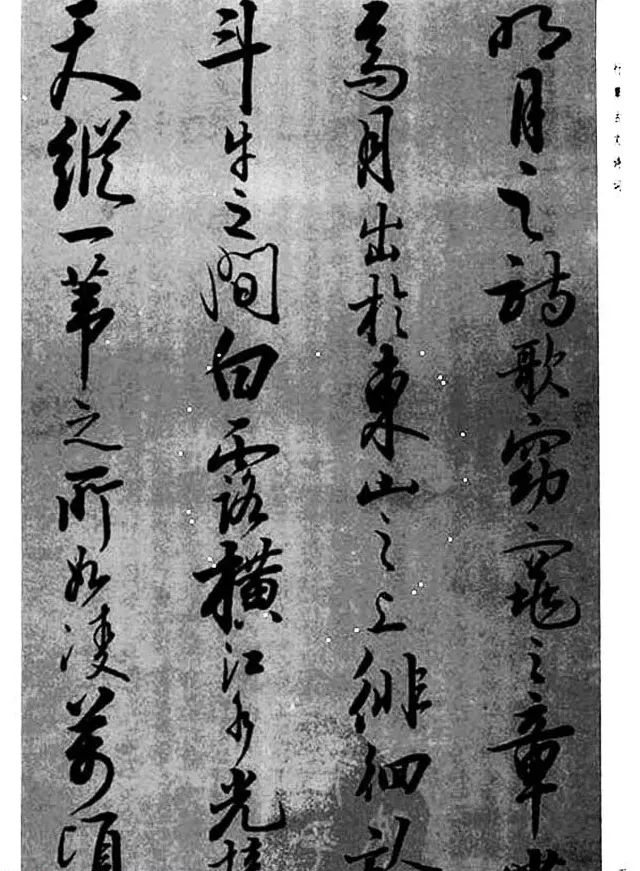 明月之詩歌窈窕之章
焉月出於東山之上徘徊於
斗牛之間白露橫江水光接
天縱一葦之所如凌萬頃